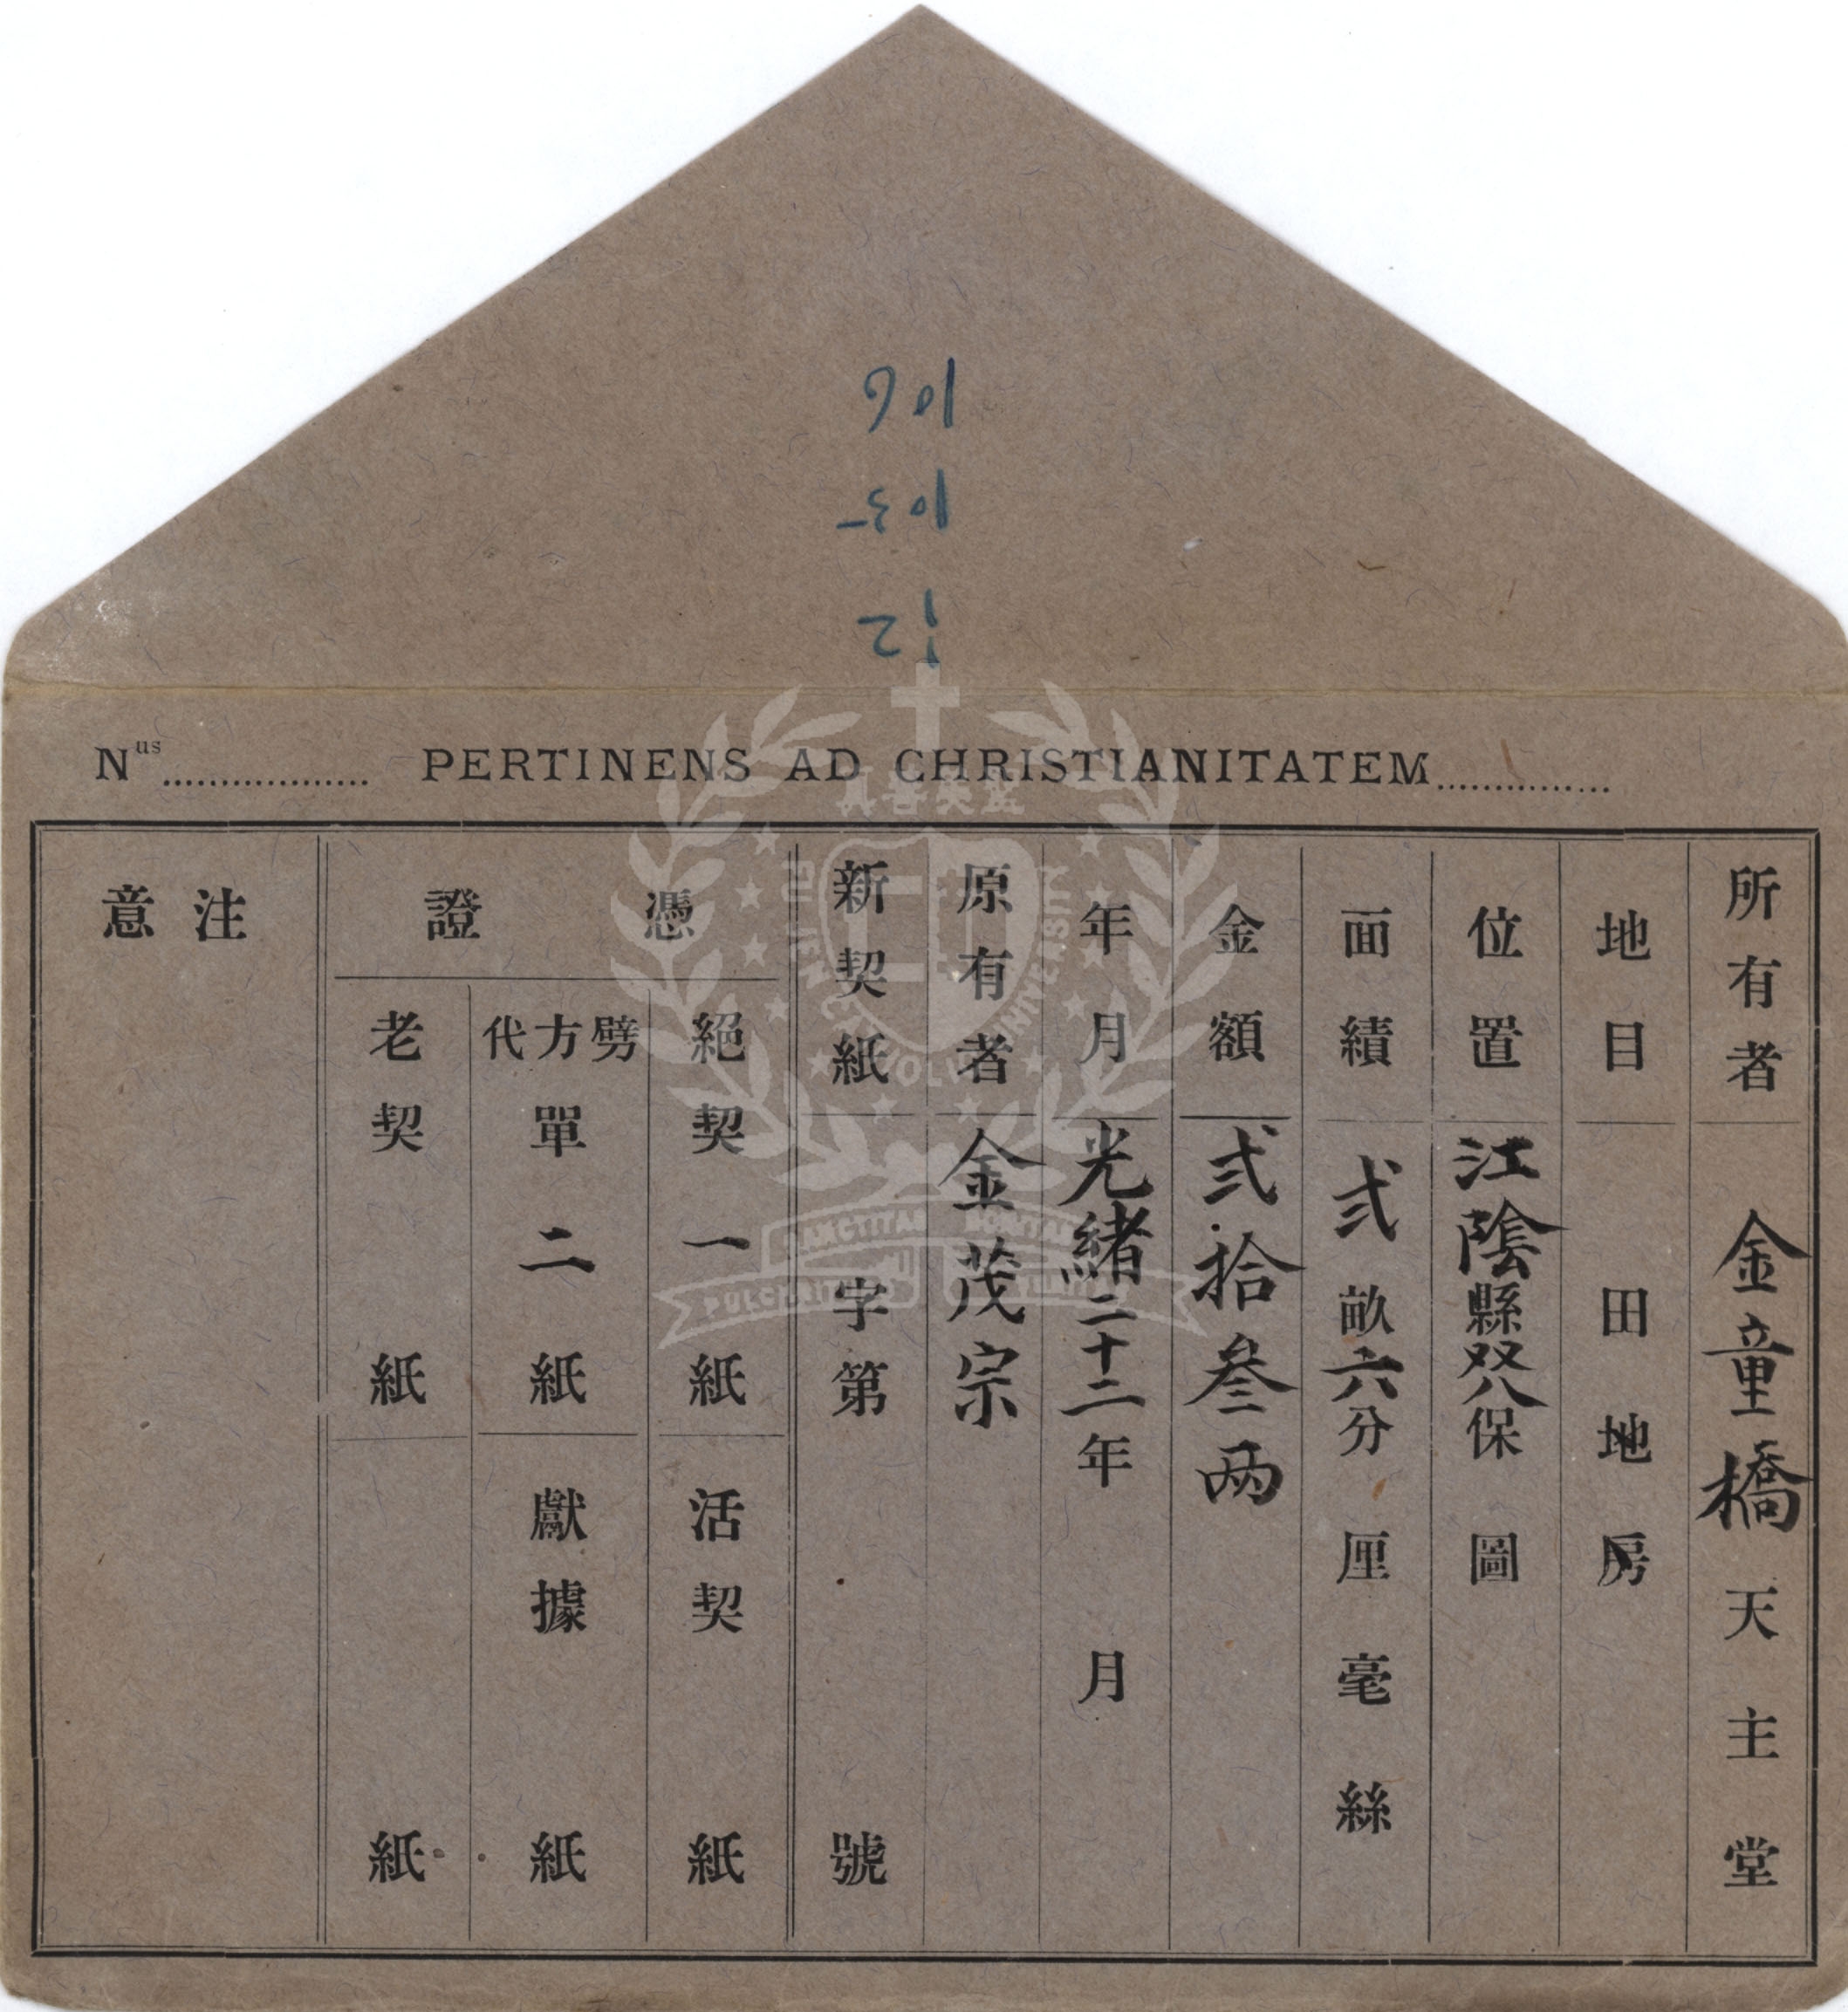 N^us.................. PERTINENS AD CHRISTIANITATEM...............
所有者 金童橋天主堂
地目 田地房
位置 江陰縣双八保圖
面績 弍畝六分厘毫絲
金額 弍拾叁两
年月 光緒二十二年月
原有者 金茂宗
新契紙 字第號
憑證
絕契一紙 活契紙
劈方代單二紙 獻據紙
老契紙 紙
注意